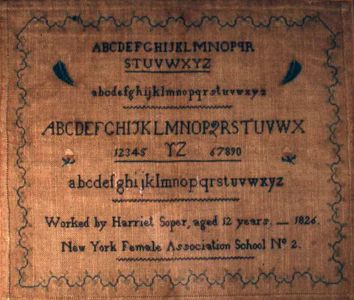 ABCDEFGHIJKLMNOPQR
STUVWXYZ
abcdefghijklmnopqrstuvwxyz
ABCDEFGHIJKLMNOPQRSTUVWX
12345 YZ 67890
abcdefghijklmnopqrstuvwxyz
Worked by Harriet Soper, aged 12 years. — 1826.
New York Female Association School No 2.